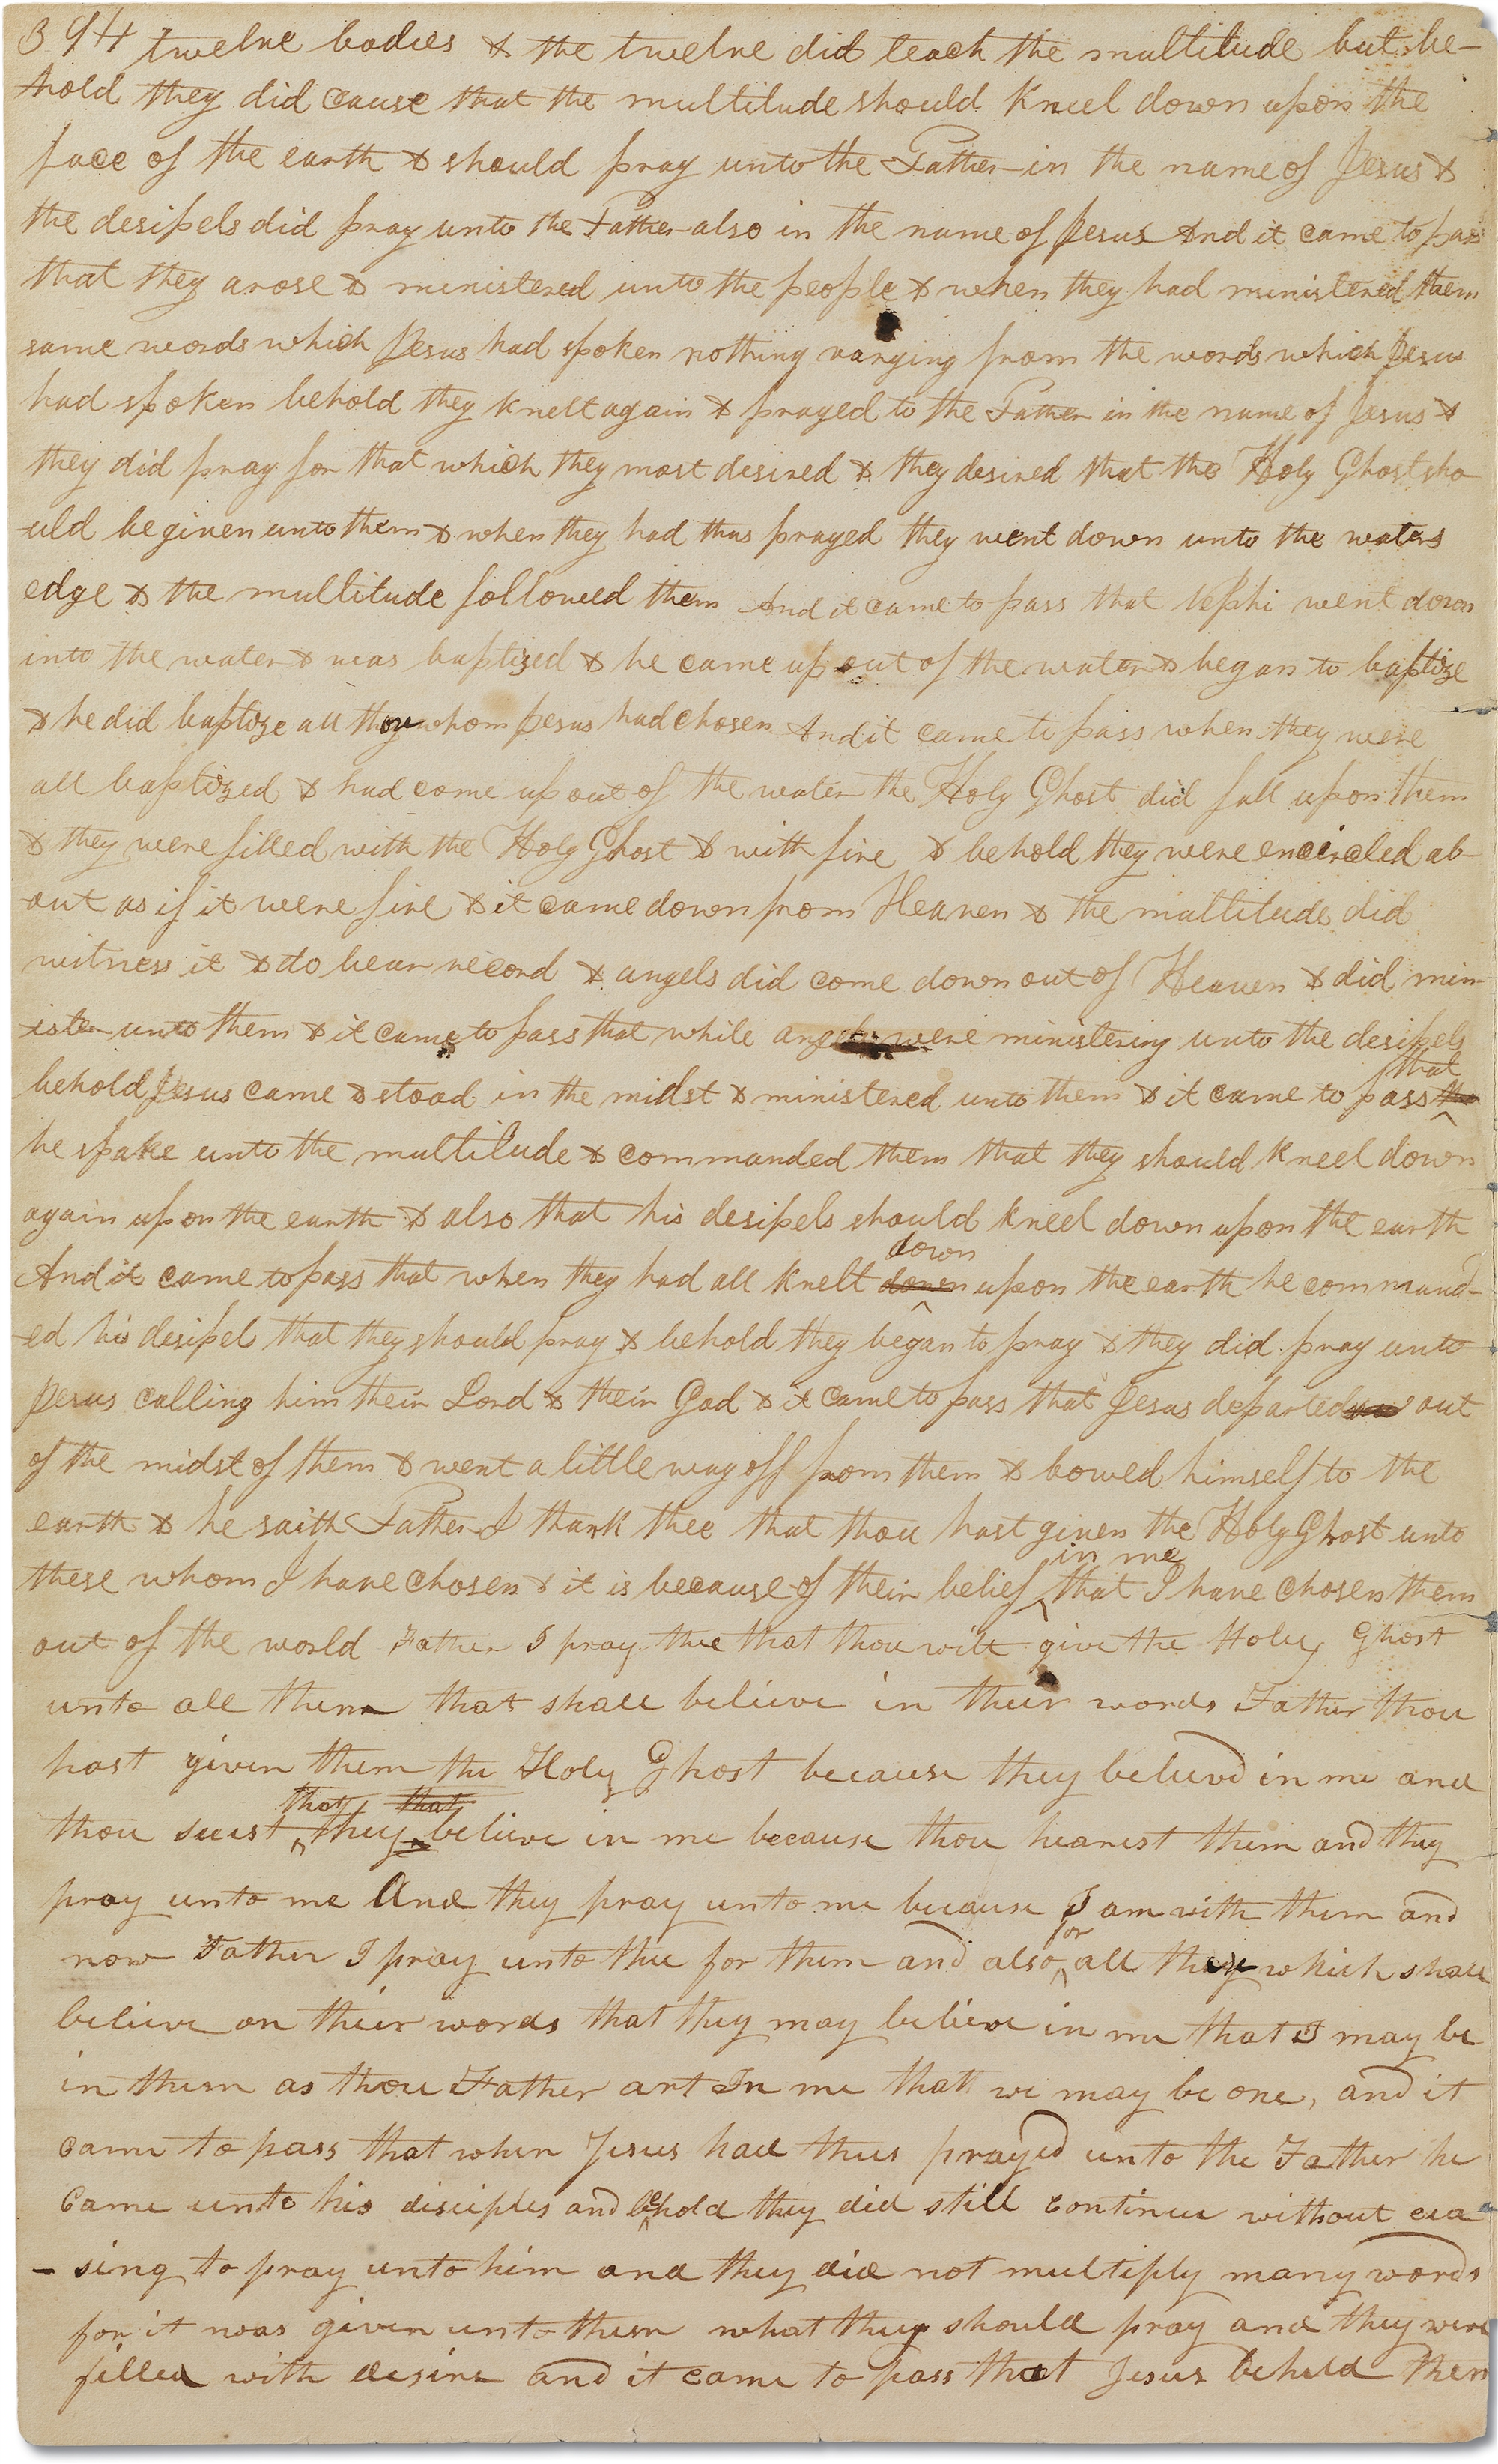 394 twelve bodies & the twelve did teach the multitude but be-
-hold they did cause that the multitude should kneel down upon the
face of the earth & should pray unto the Father in the name of Jesus &
the desipels did pray unto the Father also in the name of Jesus And it came to pass
that they arose & ministered unto the people & when they had ministered them
same words which Jesus had spoken nothing varying from the words which Jesus
had spoken behold they knelt again & prayed to the Father in the name of Jesus &
they did pray for that which they most desired & they desired that the Holy Ghost sho
-uld be given unto them & when they had thus prayed they went down unto the waters
edge & the multitude followed them And it came to pass that Nephi went down
into the water & was baptized & he came up out of the water & began to baptize
& he did baptize all they whom Jesus had chosen And it came to pass when they were
all baptized & had come up out of the water the Holy Ghost did fall upon them
& they were filled with the Holy Ghost & with fire & behold they were encircled ab-
-out as if it were fire & it came down from Heaven & the multitude did
witness it & do bear record & angels did come down out of Heaven & did min-
-ister unto them & it came to pass that while angels were ministering unto the desipels
behold Jesus came & stood in the midst & ministered unto them & it came to pass that
he spake unto the multitude & commanded them that they should kneel down
again upon the earth & also that his desipels should kneel down upon the earth
And it came to pass that when they had all knelt down upon the earth he command-
-ed his desipels that they should pray & behold they began to pray & they did pray unto
Jesus calling him their Lord & their God & it came to pass that Jesus departed out
of the midst of them & went a little way off from them & bowed himself to the
earth & he saith Father I thank thee that thou hast given the Holy Ghost unto
these whom I have chosen & it is because of their belief in me that I have chosen them
out of the world Father I pray thee that thou wilt give the Holy Ghost
unto all them that shall believe in their words Father thou
hast given them the Holy Ghost because they believed in me and
thou seest that they believe in me because thou hearest them and they
pray unto me And they pray unto me because I am with them and
now Father I pray unto thee for them and also for all they which shall
believe on their words that they may believe in me that I may be
in them as thou Father art In me that we may be one, and it
came to pass that when Jesus had thus prayed unto the Father he
came unto his disciples and behold they did still continue without cea
- sing to pray unto him and they did not multiply many words
for it was given unto them what they should pray and they were
filled with desire and it came to pass that Jesus beheld them